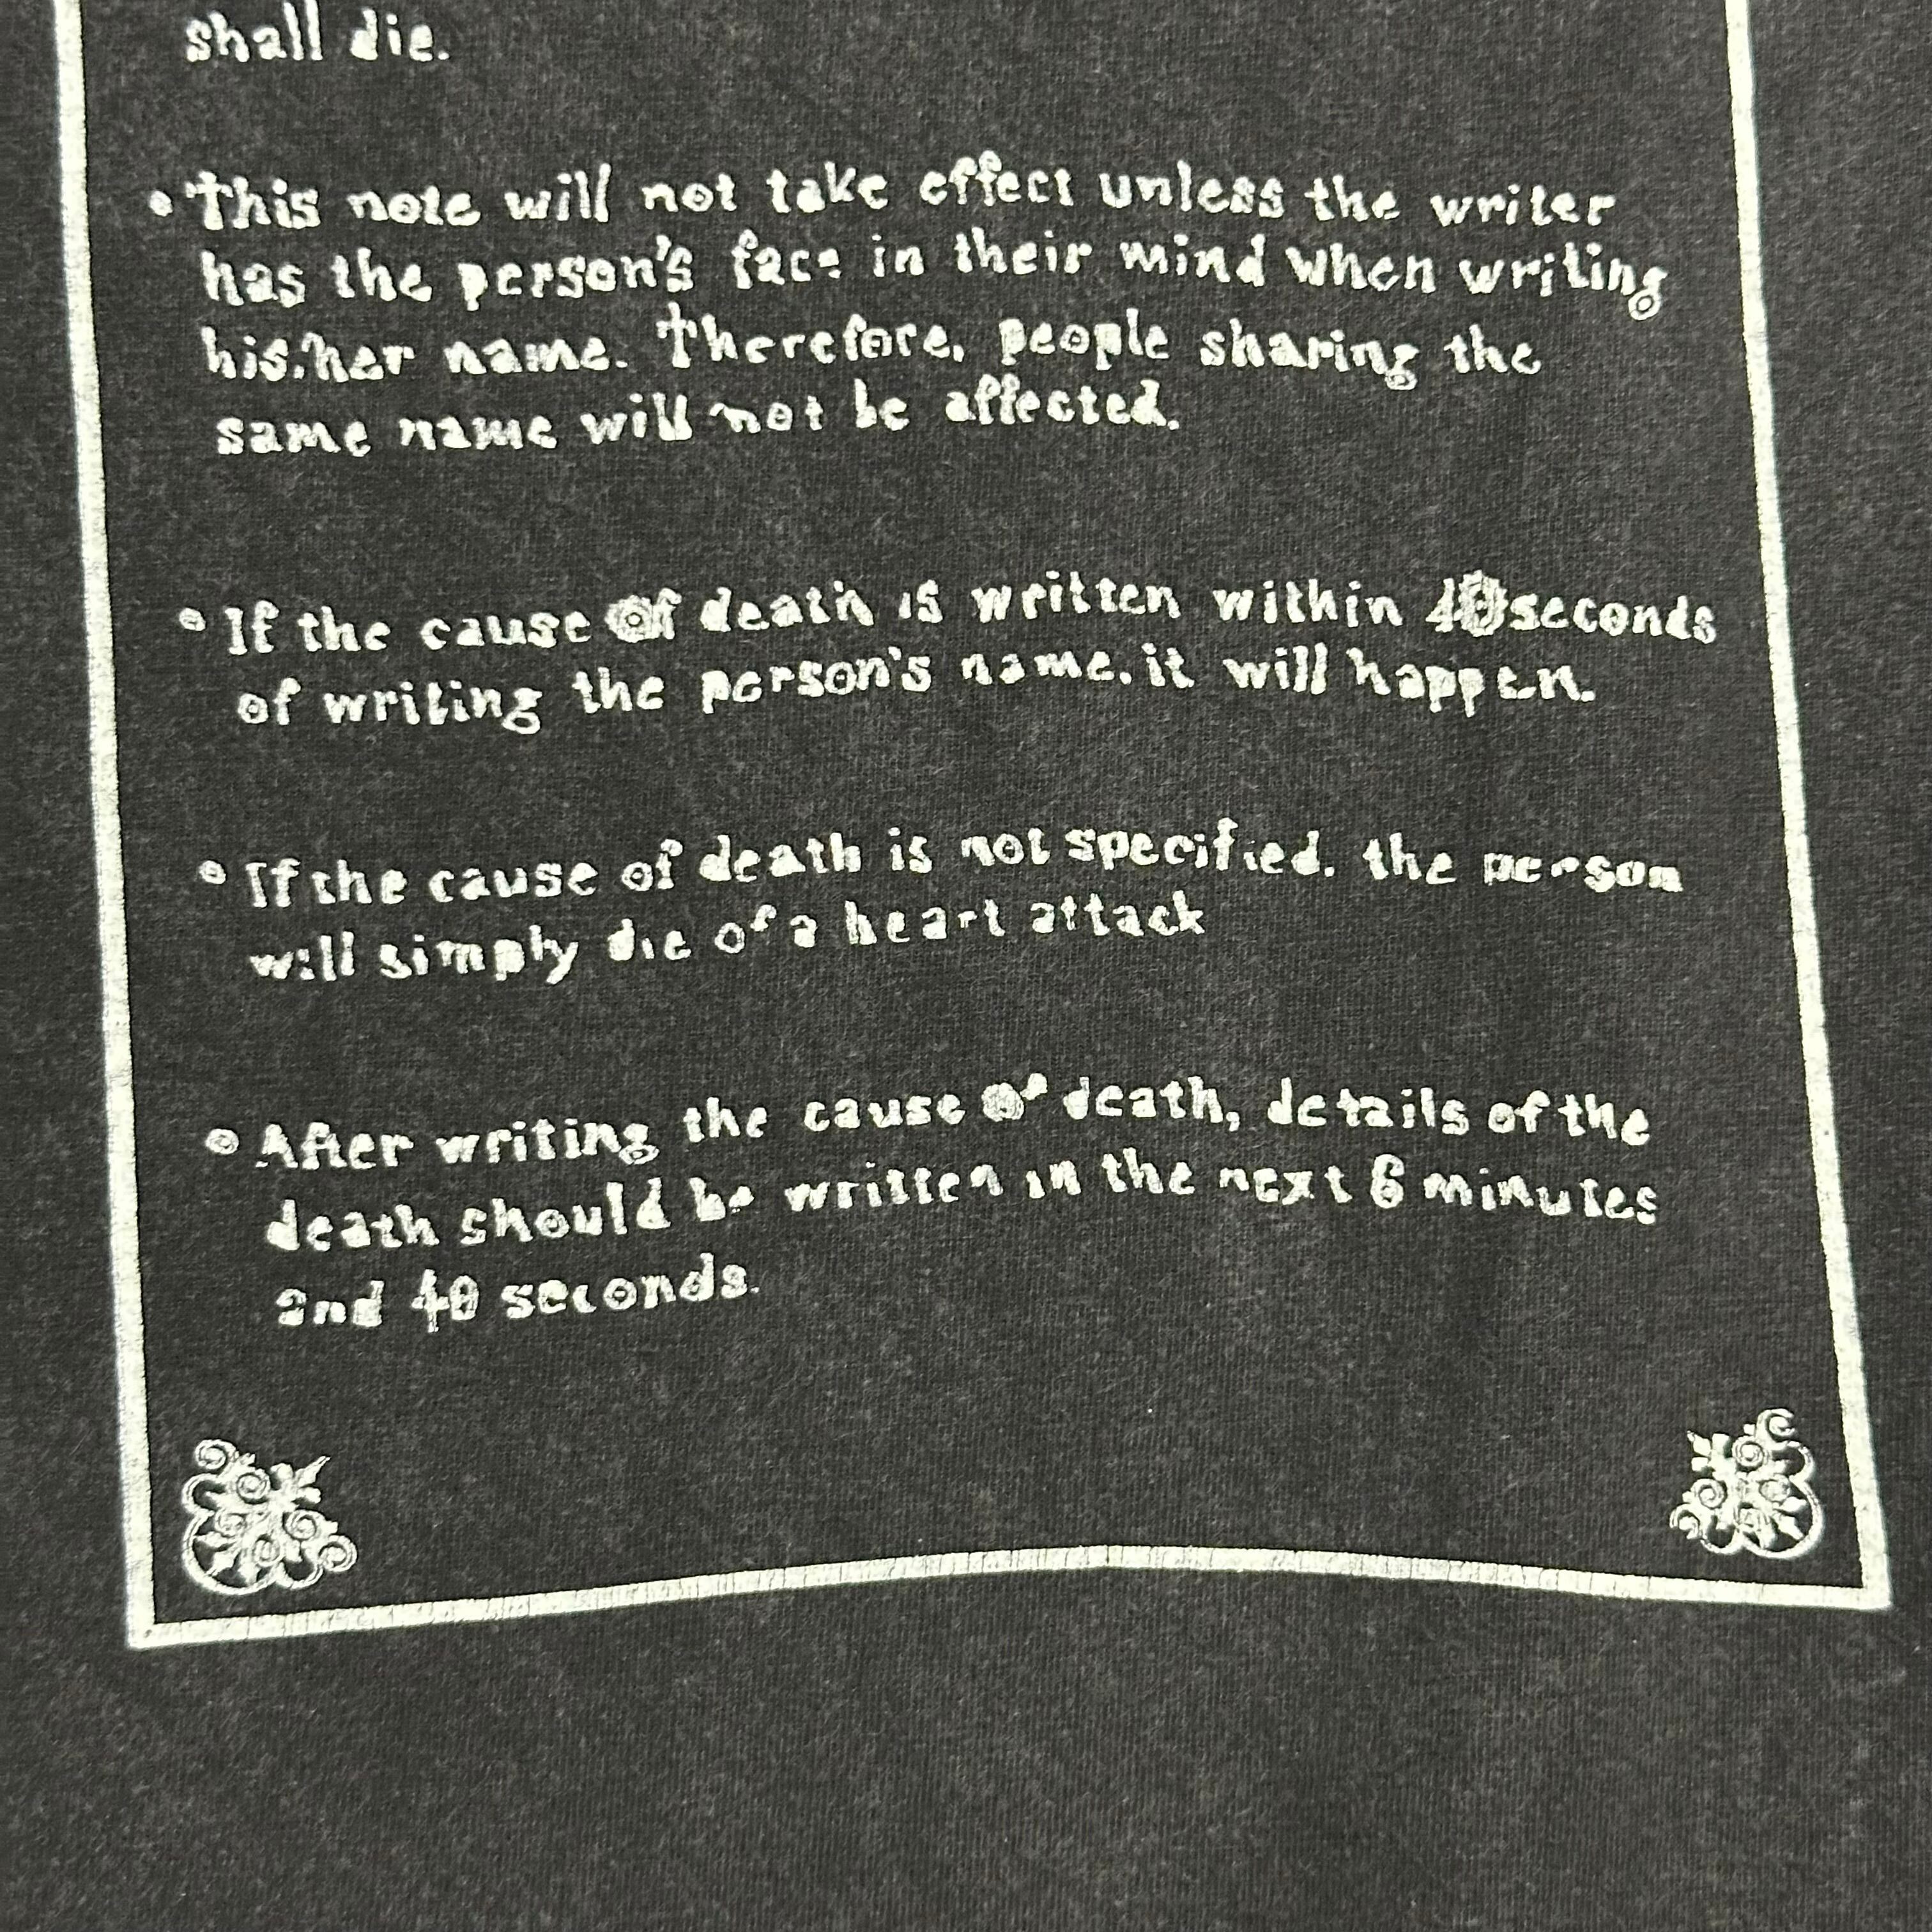 shall die.
• This note will not take effect unless the writer
has the person's face in their mind when writing
his/her name. Therefore, people sharing the
same name will not be affected.
• If the cause of death is written within 40 seconds
of writing the person's name, it will happen.
• If the cause of death is not specified, the person
will simply die of a heart attack
• After writing the cause of death, details of the
death should be written in the next 6 minutes
and 40 seconds.